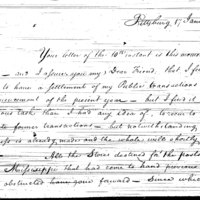 Pittsburg 17 Jan
Your letter of the 10th instant is this momen
— and I assure you my Dear Friend, that I f
to have a Settlement of my Public Transactions
of the present year — but I find it
task than I had any idea of, to come to
to former transactions — but notwithstanding
is already made and the whole will shortly
— All the Stores destined for the posts
Mississippi that had come to hand previous
obstructed have gone forward — Since which